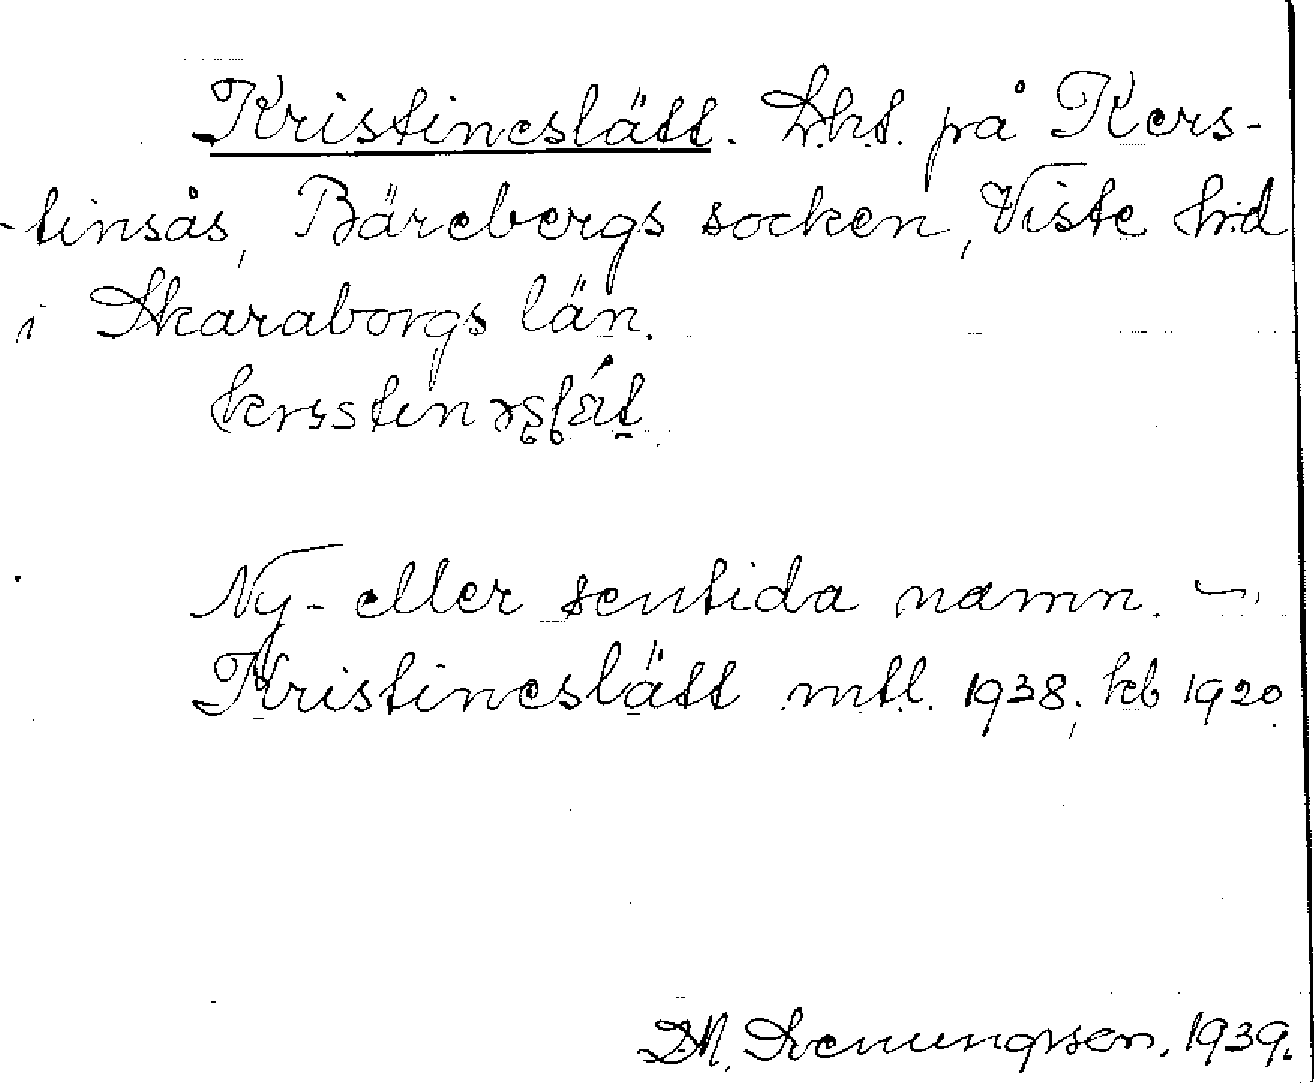 Kristineslätt. Lht. på Kers-
-tinsås, Bärebergs socken, Viste hd
i Skaraborgs län.
Ny- eller sentida namn. –
Kristineslätt mtl. 1938; kb 1920
1939.